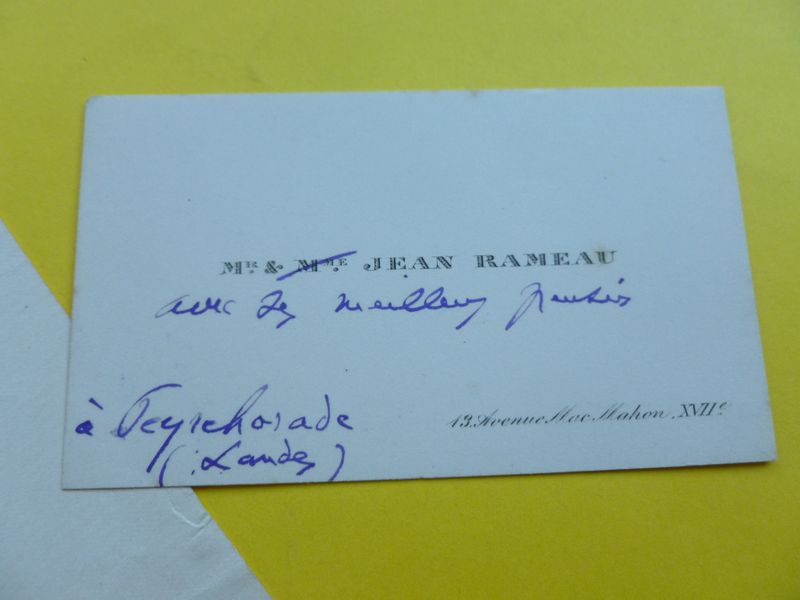 Mr. & Mme. JEAN RAMEAU
avec ses meilleurs pensées
à Peyrehorade
(Landes)
13. Avenue Mac Mahon. XVIIe